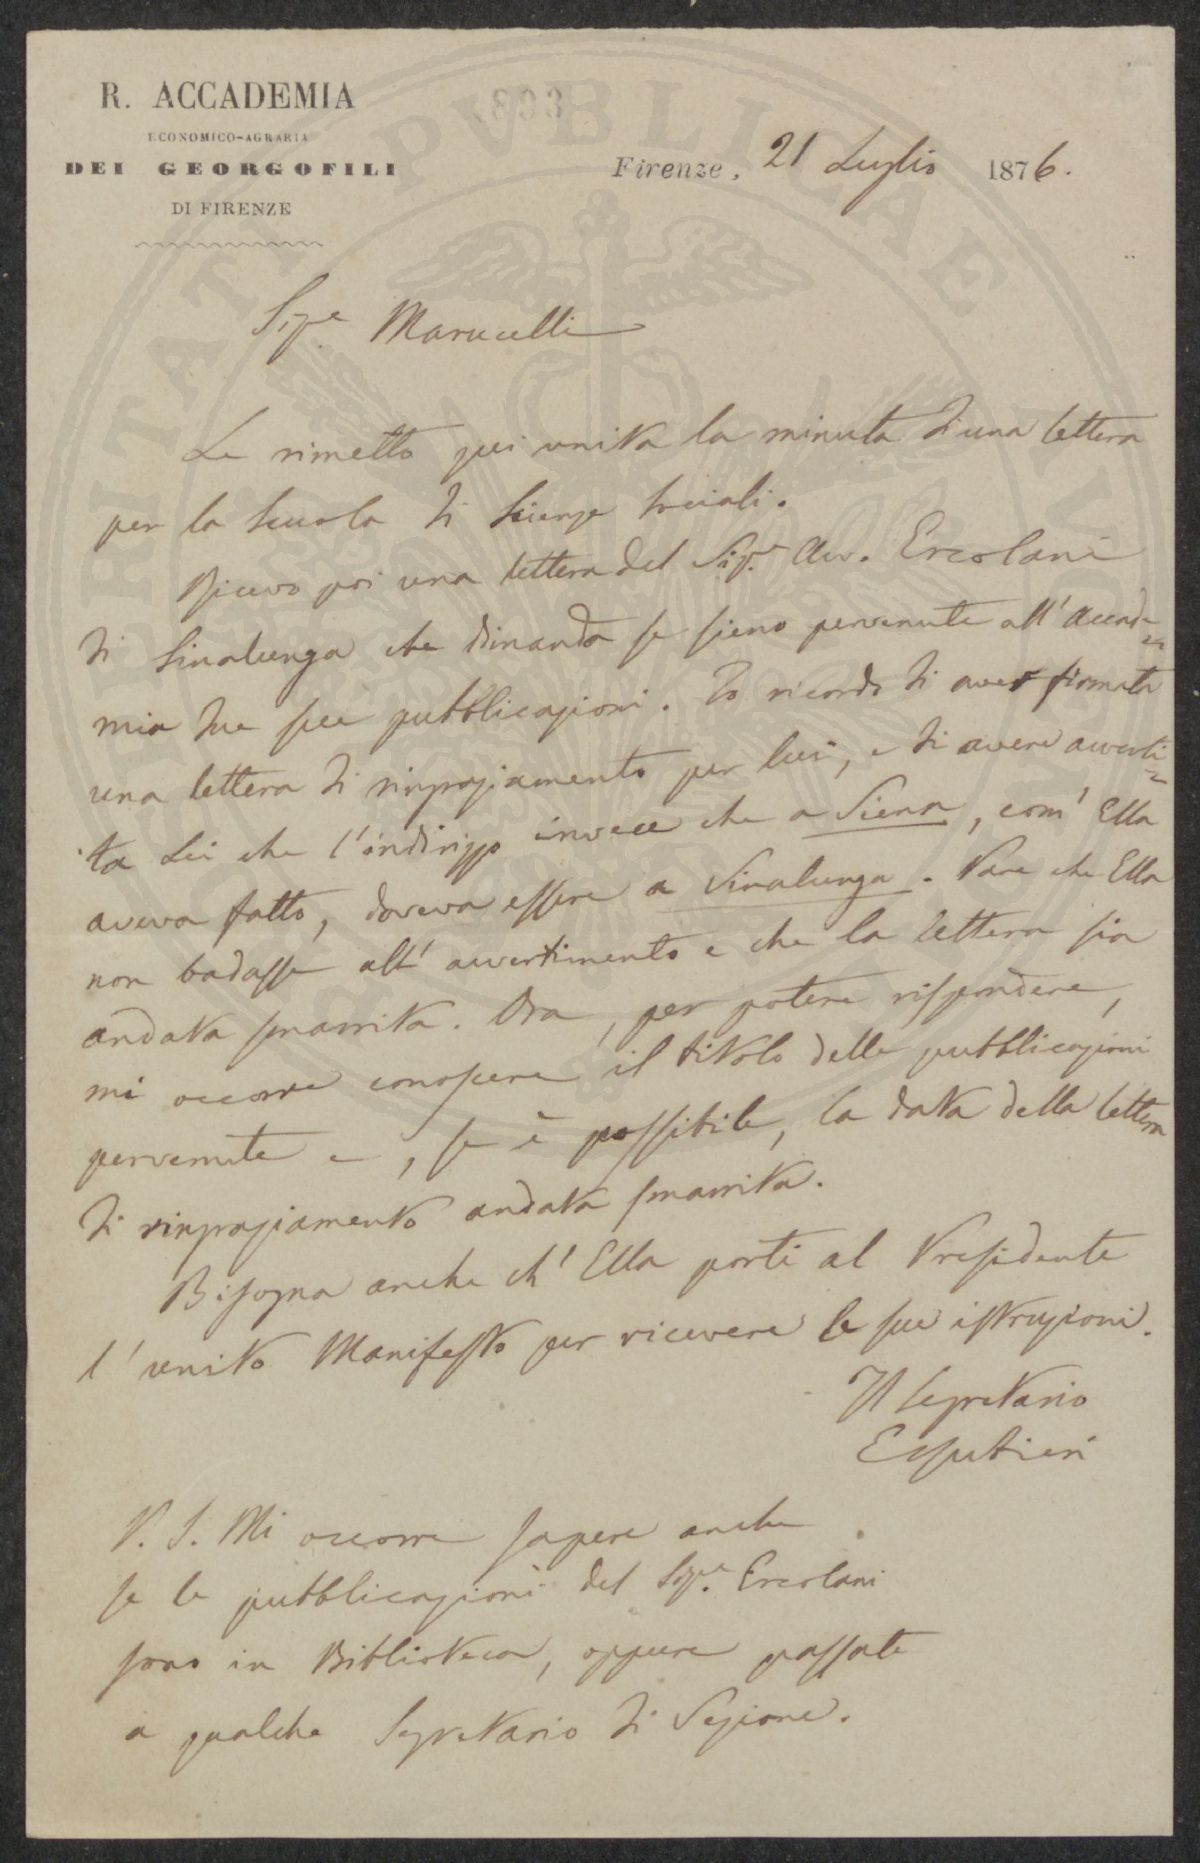 R. ACCADEMIA
ECONOMICO-AGRARIA
DEI GEORGOFILI
DI FIRENZE
Firenze, 21 Luglio 1876.
Sigre Marucelli
Le rimetto qui unita la minuta di una lettera
per la Scuola di Scienze Sociali.
Ricevo poi una lettera del Sigre Avv. Ercolani
di Sinalunga che dimanda se sieno pervenute all'Accade=
mia due sue pubblicazioni. Io ricordo di aver firmata
una lettera di ringraziamento per lui, e di avere avverti=
ta Lei che l'indirizzo invece che a Siena, com' Ella
aveva fatto, doveva essere a Sinalunga. Pare che Ella
non badasse all' avvertimento e che la lettera sia
andata smarrita. Ora, per potere rispondere,
mi occorre conoscere il titolo delle pubblicazioni
pervenute e, se è possibile, la data della lettera
di ringraziamento andata smarrita.
Bisogna anche ch' Ella porti al Presidente
l'unito Manifesto per ricevere le sue istruzioni.
Il Segretario
P. S. Mi occorre sapere anche
se le pubblicazioni del Sigre Ercolani
sono in Biblioteca, oppure passate
a qualche Segretario di Sezione.
PVBLICAE